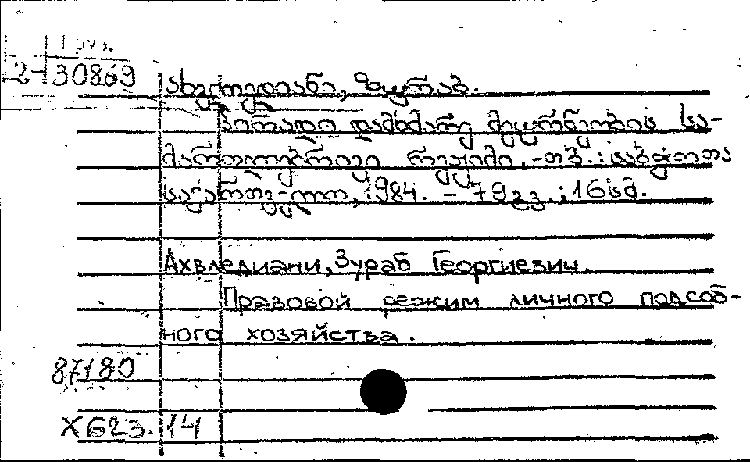 2-30869
ახვლედიანი, ზურაბ.
პირადი დამხმარე მეურნეობის სა-
მართლებრივი რეჟიმი. -თბ.: საბჭოთა
საქართველო, 1984. - 79გვ.; 16სმ.
Ахвледиани, Зураб Георгиевич.
Правовой режим личного подсоб-
ного хозяйства.
87180
X623.14